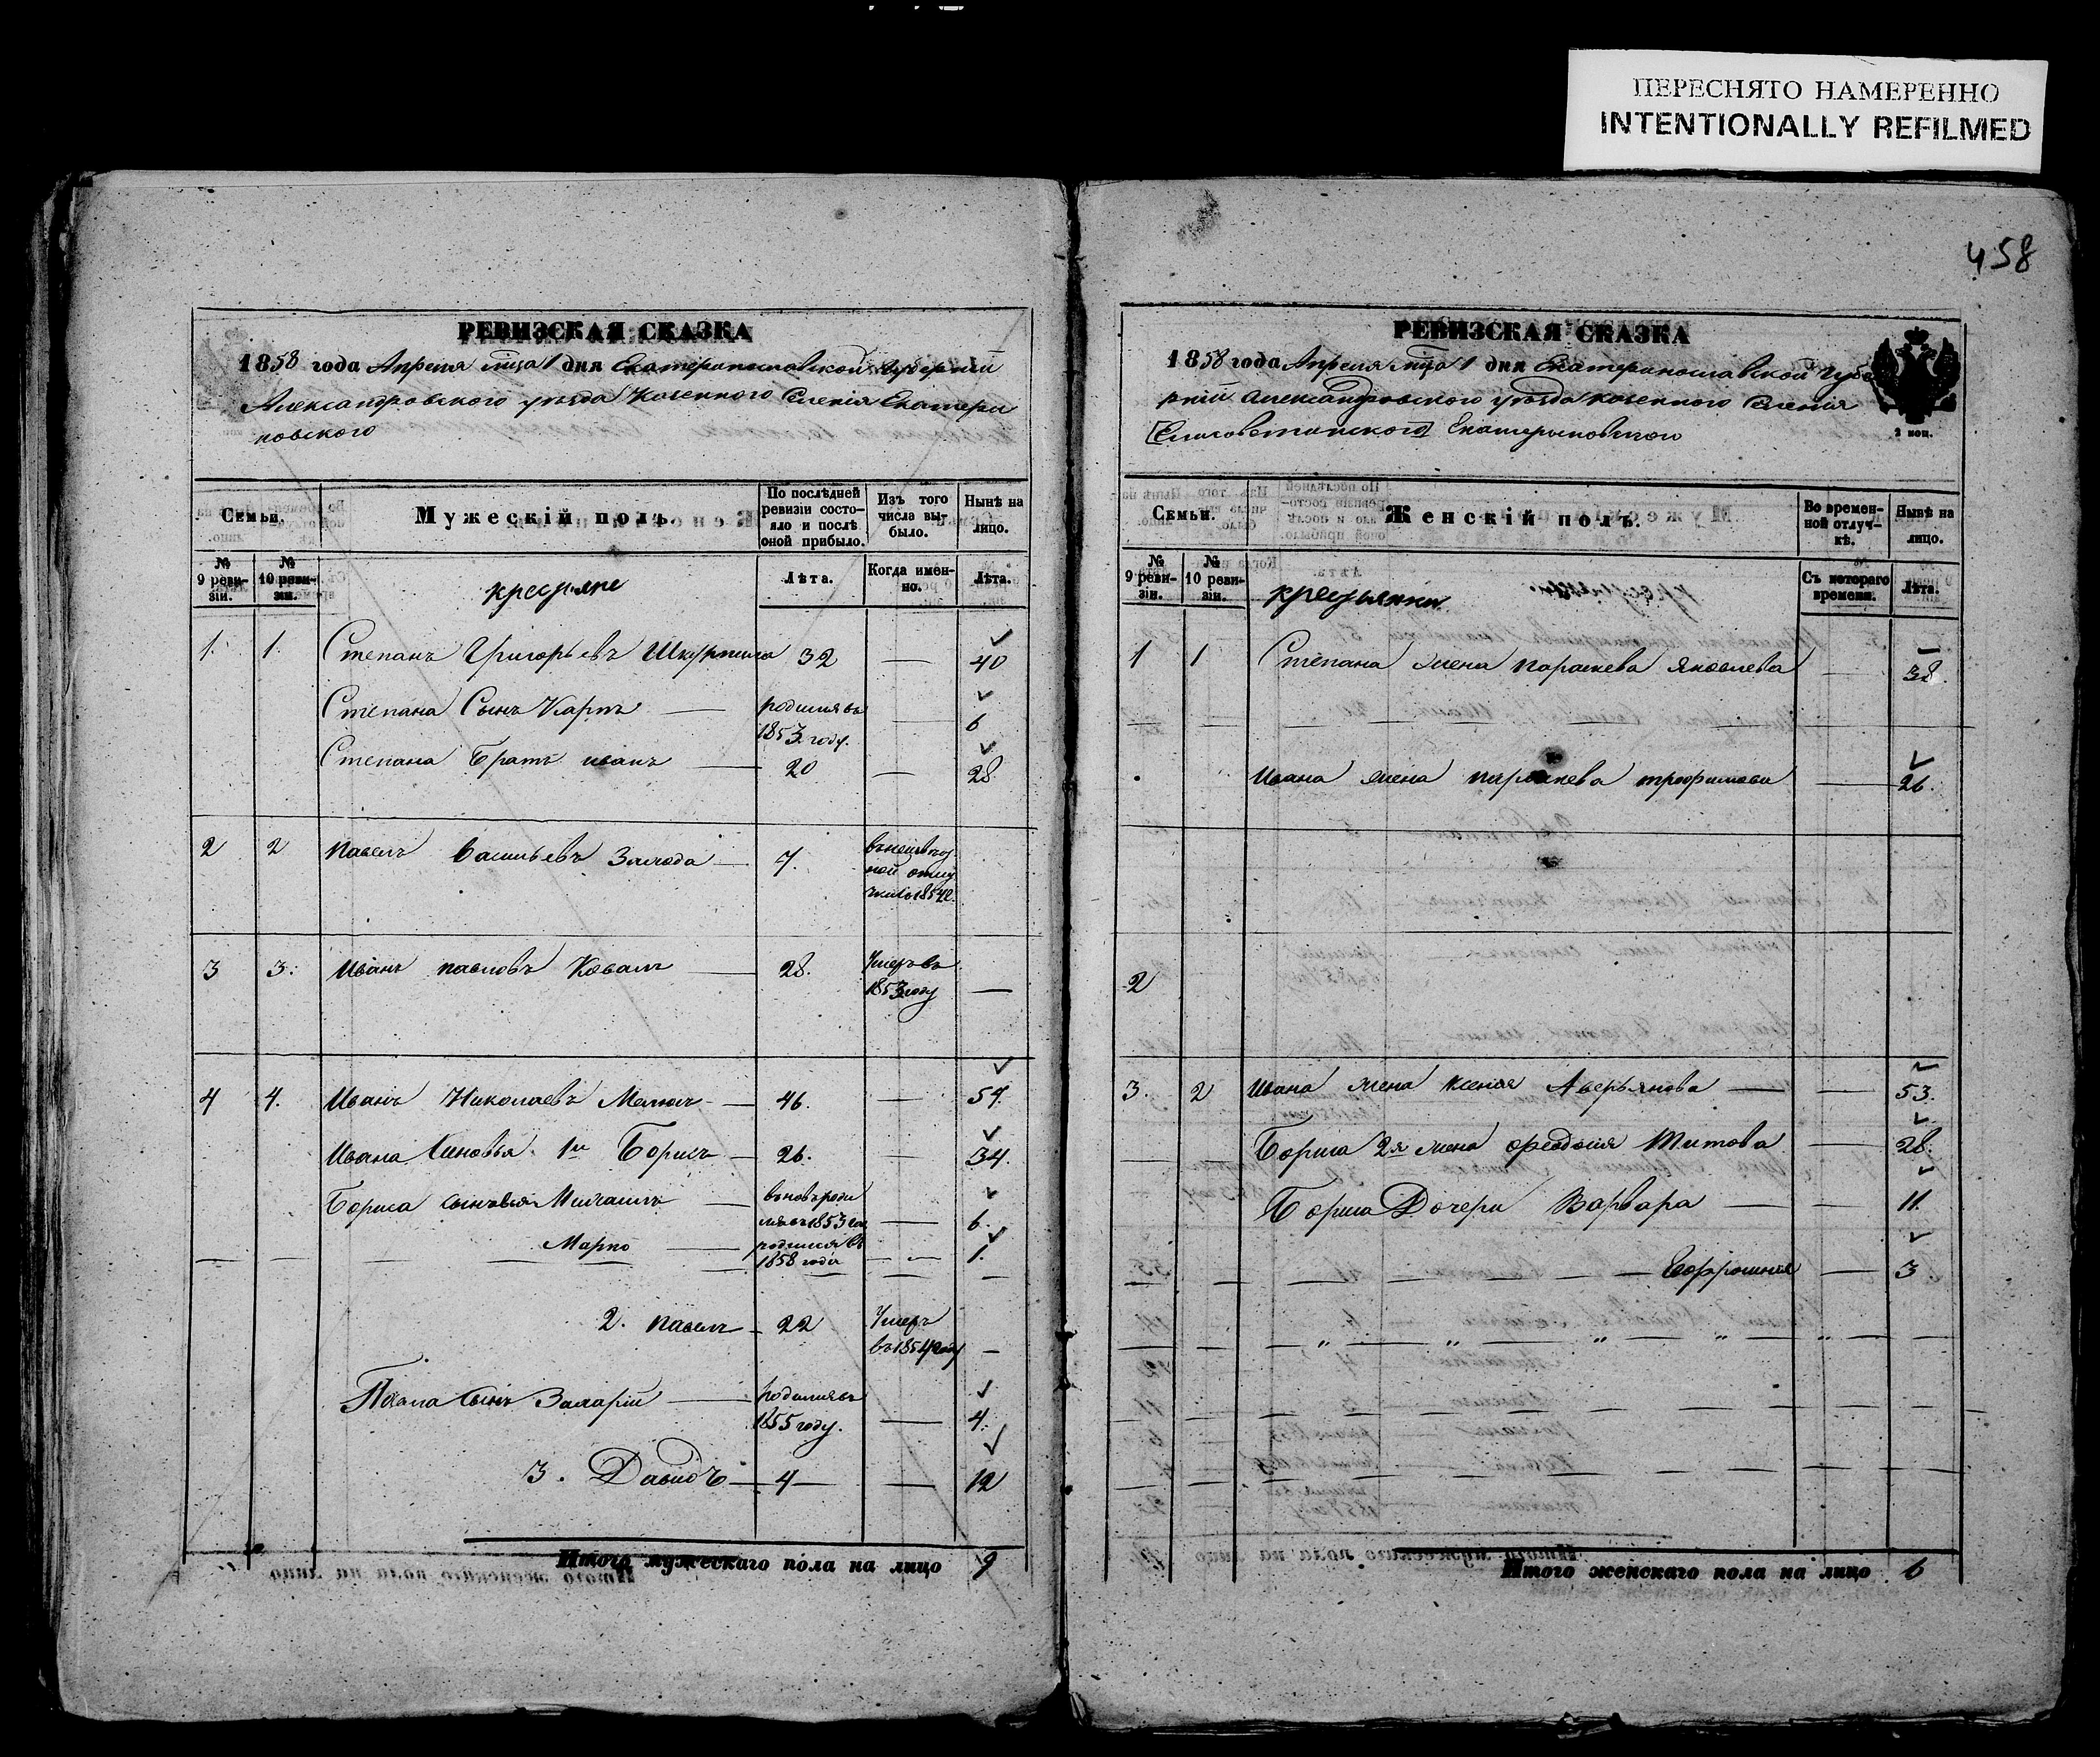 ПЕРЕСНЯТО НАМЕРЕННО
INTENTIONALLY REFILMED
458
РЕВИЗСКАЯ СКАЗКА
1858 года Апреля мца 1 дня Екатеринославской губерніи
Александровского уезда Козенного Селенія Екатери
новского
Семьи.
Мужескій полъ.
По послѣдней ревизіи состояло и послѣ оной прибыло.
Изъ того числа выбыло.
Нынѣ на лицо.
№ 9 ревизіи.
№ 10 ревизіи.
крестьяне
Лѣта.
Когда именно.
Лѣта.
1. 1. Степанъ Григорьевъ 32 — 40
Степана Сынъ Карпъ — родился въ 1853 году. — 6
Степана Братъ иванъ — 20 — 28
2 2 павелъ васильевъ — 7. 1854
3 3. Иванъ павловъ Коваль — 28. Умеръ въ 1853 году —
4 4. Иванъ Николаевъ — 46. — 54.
Ивана Синовья 1й Борисъ — 26. — 34.
Бориса сыновья Михаилъ — вновь родился въ 1853 год — 6.
Марко — родился въ 1858 года — 1.
2. павелъ — 22 Умеръ въ 1854 году —
Павла Сынъ Захарій — родился въ 1855 году. — 4.
3. Давидъ — 4 — 12
Итого мужескаго пола на лицо 9
РЕВИЗСКАЯ СКАЗКА
1858 года Апреля мца 1 дня Екатеринославской губе
рніи Александровского уезда козенного Селенія
Екатериновского
2 коп.
Семьи.
Женскій полъ.
Во временной отлучкѣ.
Нынѣ на лицо.
№ 9 ревизіи.
№ 10 ревизіи.
крестьянки
Съ котораго времени.
Лѣта.
1 1 Степана жена параскева яковлева — 38.
Ивана жена параскева трофимова — 26.
2
3. 2 Ивана жена ксенія Аверьянова — 53.
Бориса 2я жена феодосія Титова — 28.
Бориса Дочери Варвара — 11.
Ефросинія — 3
Итого женскаго пола на лицо 6